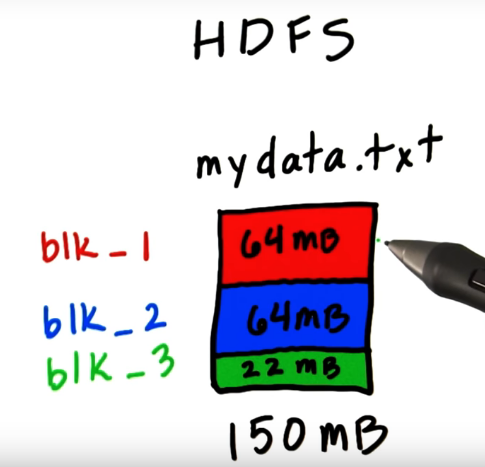 HDFS
mydata.txt
blk_1 64 mB
blk_2 64mB
blk_3 22 mB
150 mB